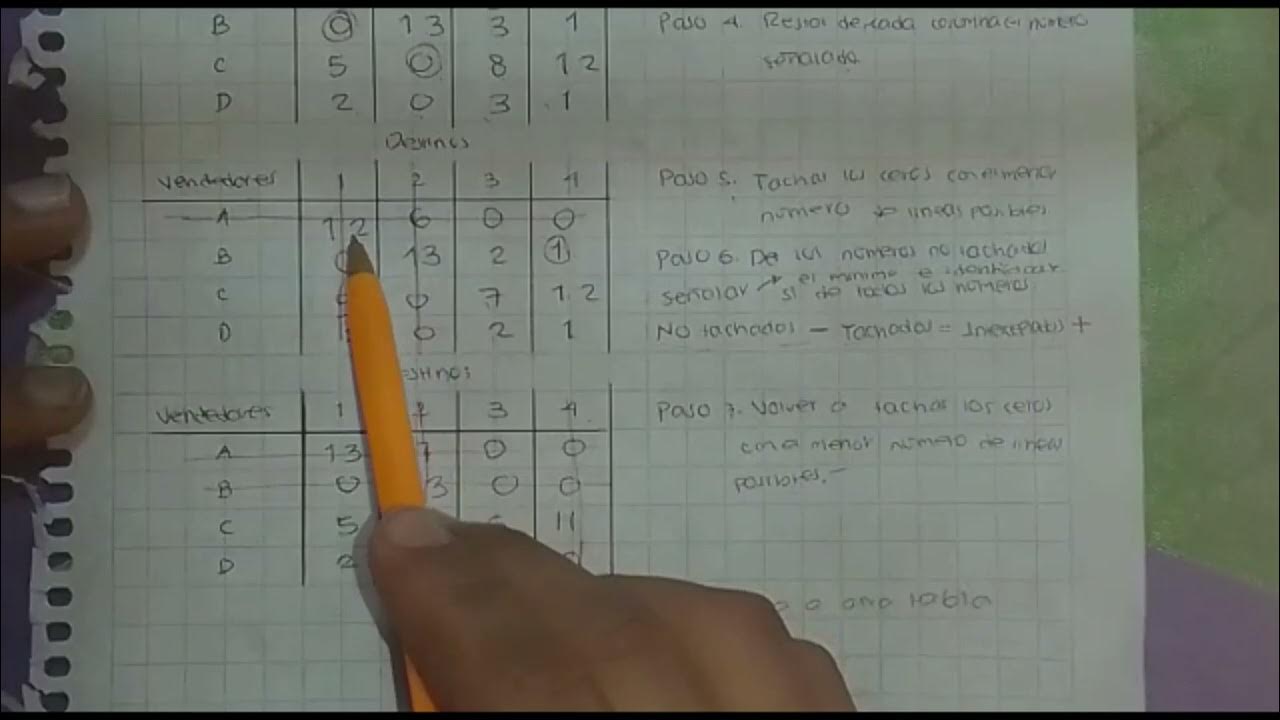 B 0 13 3 1 Paso 4. Restar de cada columna el número
C 5 0 8 12 señalado
D 2 0 3 1
Destinos
Vendedores 1 2 3 4 Paso 5. Tachar los ceros con el menor
A 12 6 0 0 número de lineas posibles
B 0 13 2 1 Paso 6. De los números no tachados
C 0 7 12 señalar el minimo e identificar
si de todos los números
D 0 2 1 No tachados - Tachados = Intercepatos +
Vendedores 1 2 3 4 Paso 7. Volver a tachar los ceros
A 13 7 0 0 con el menor número de lineas
B 0 3 0 0 posibles.-
C 5 11
D 2
o una tabla